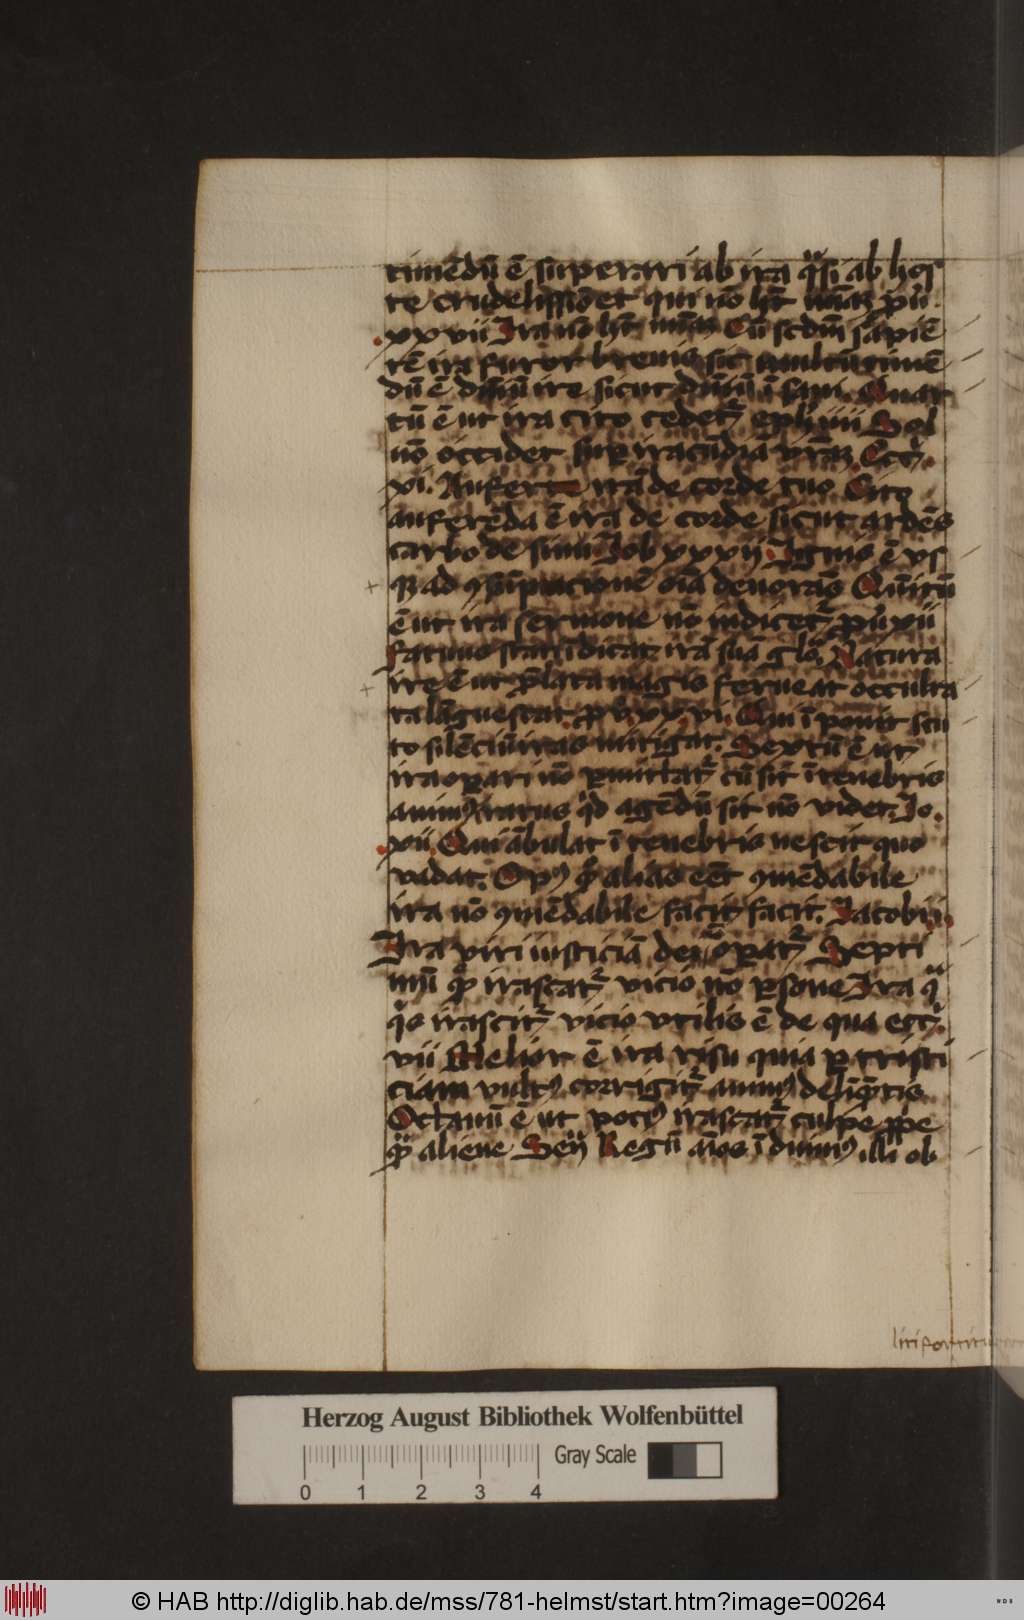 timēdū ē superari ab ira qͣsi ab hos
te crudelissīo et qui nō hꝫt mīaꝫ ꝓuͥ.
xxvii Ira nō hꝫt mīaꝫ Cū scdm̄ sapiē
tē ira furor breuis sit multū timē
dū ē dn̄iū ire sicut dn̄iū īsani. Quar
tū ē ut ira cito cedetᷣ eph iiii Sol
nō occidet suꝑ iracūdiā vr̄aꝫ Eccᷣ.
xi. Aufer irā de corde tuo Cito
auferēda ē ira de corde sicut ardēs
carbo de sinu Iob xxxii Ignis ē vs
qꝫ ad ꝯsūpcionē oīa deuorās Quītū
ē ut ira sermone nō indicetᷣ ꝓuͥ xii
Fatuus statī īdicat irā suā glo. Natura
ire ē ut ꝓlata magis ferueat occulta
ta lāguescat ꝓuͥ xxvi. Qui īponit stu
to silēciū iras mitigat. Sextū ē ut
ira oꝑari nō ꝑmittatᷣ cū sit ī tenebris
animꝰ iratus qͥd agēdū sit nō videt. Io.
xii Qui ābulat ī tenebris nescit quo
vadat. Opꝰ qͦ aliās eēt ꝯmēdabile
ira nō ꝯmēdabile facit facit. Iacobi i.
Ira viri iusticiā dei nō oꝑatᷣ Septi
mū qͦ irascatᷣ vicio nō ꝑsone Ira qͣ
qͥs irascitᷣ vicio vtilis ē de qua eccᷣ.
vii Melior ē ira risu quia ꝑ tristi
ciam vultꝰ corrigitᷣ animꝰ delīq̄tis
Octauū ē ut pociꝰ irascatᷣ culpe ꝓpe
qͣ aliene Regū aīos īduimꝰ illi ob
Herzog August Bibliothek Wolfenbüttel
Gray Scale
0 1 2 3 4
© HAB http://diglib.hab.de/mss/781-helmst/start.htm?image=00264